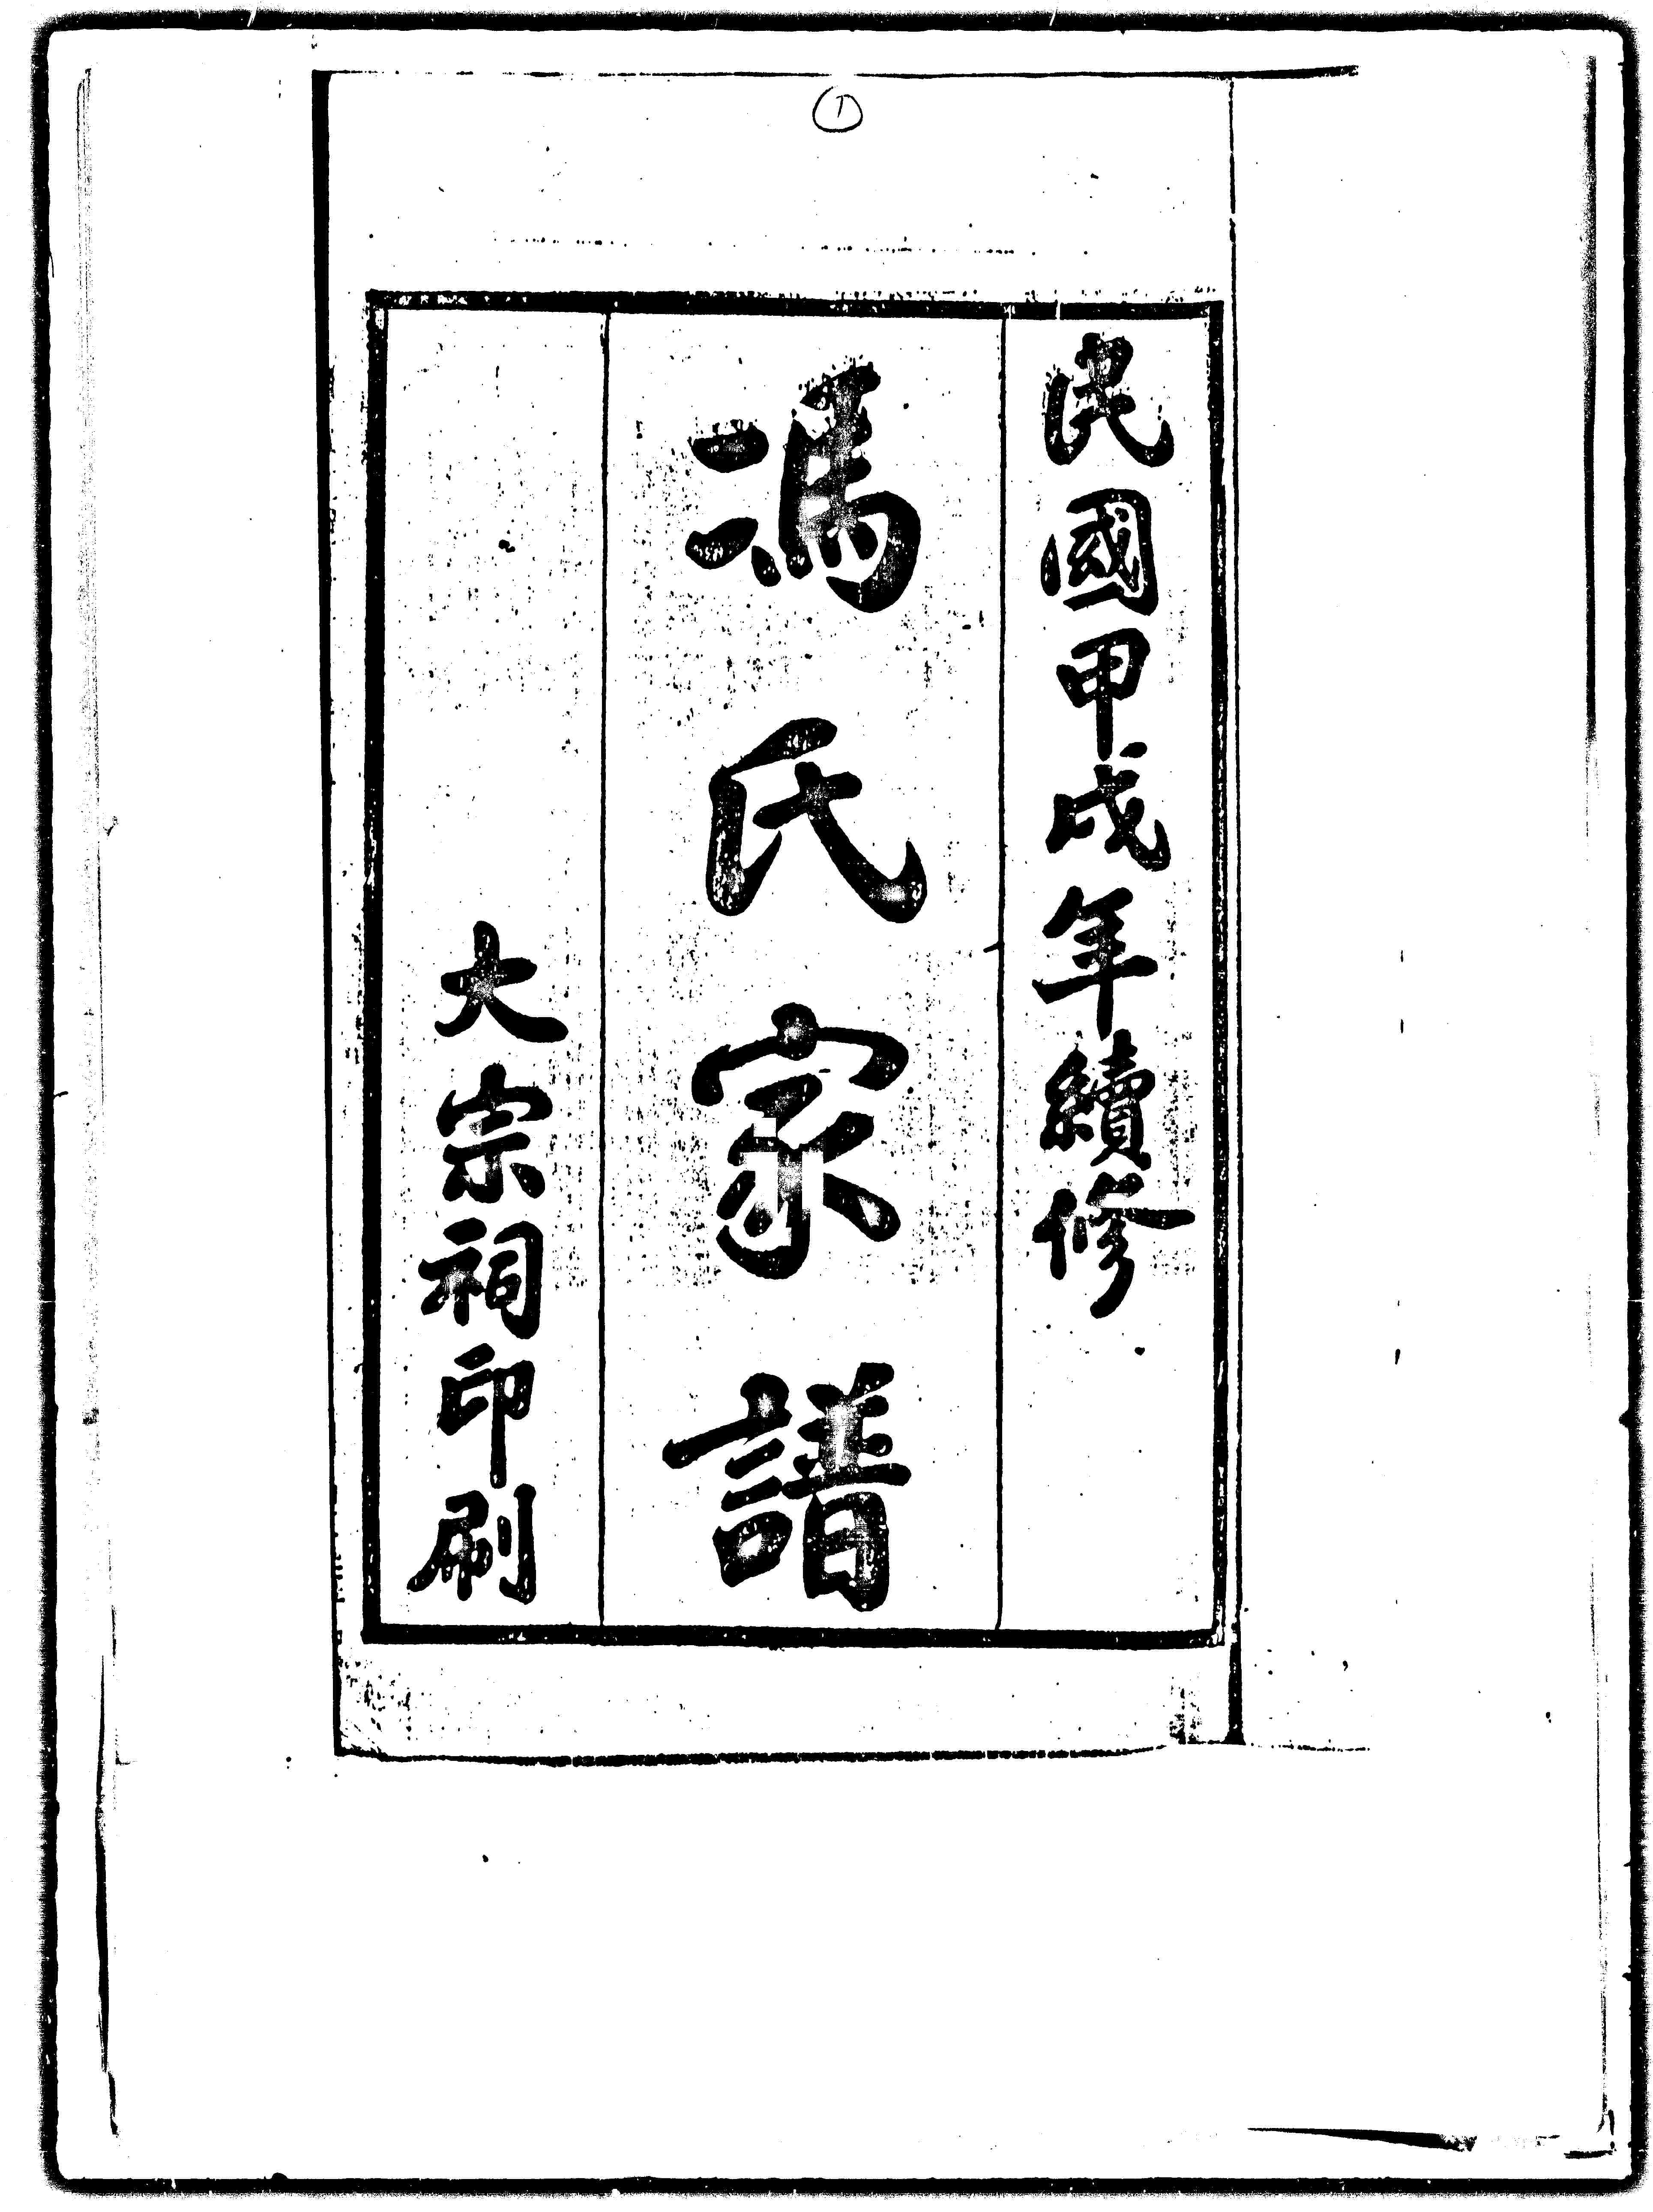 ①
民國甲戌年續修
馮氏家譜
大宗祠印刷